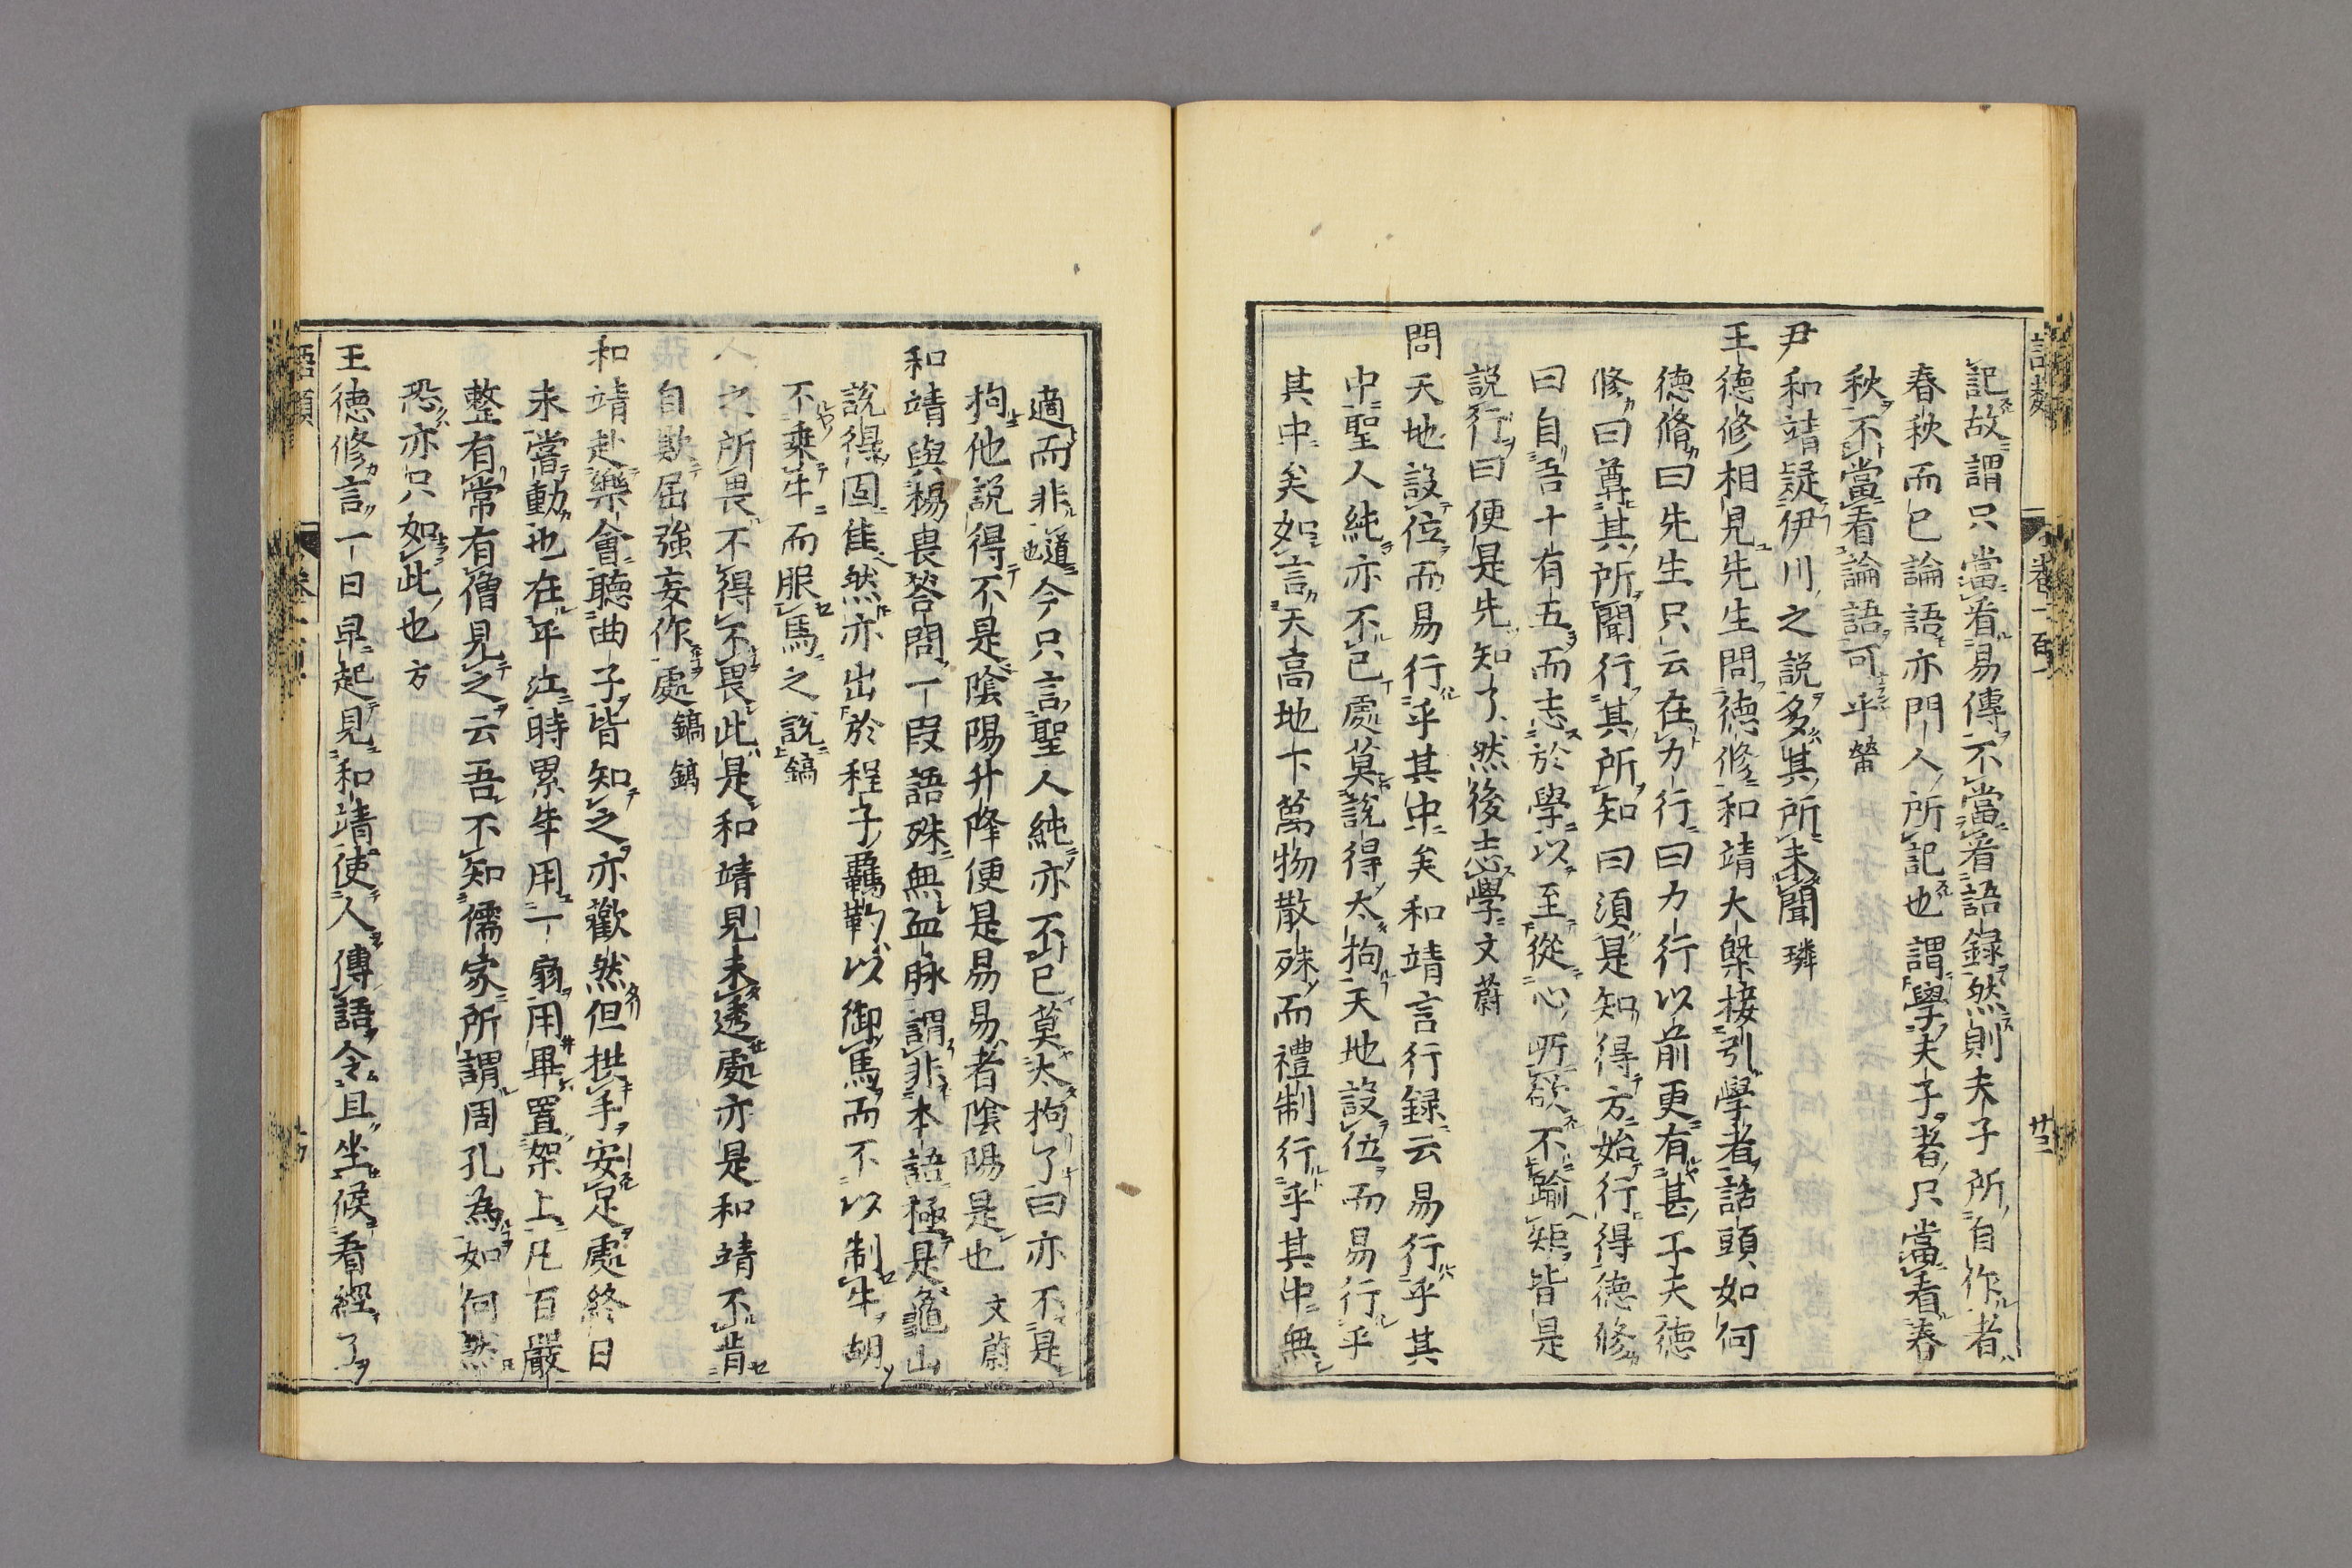 記故謂只當看易傳不當看語録然則夫子所自作者
春秋而已論語亦門人所記也謂學夫子者只當看春
秋不當看論語可乎㽦
尹和靖疑伊川之説多其所未聞璘
王德修相見先生問德修和靖大槩接引學者話頭如何
德脩曰先生只云在力行曰力行以前更有甚工夫德
修曰尊其所聞行其所知曰須是知得方始行得德修
曰自吾十有五而志於學以至從心所欲不踰矩皆是
説行曰便是先知了然後志學文蔚
問天地設位而易行乎其中矣和靖言行録云易行乎其
中聖人純亦不已處莫説得太拘天地設位而易行乎
其中矣如言天高地下萬物散殊而禮制行乎其中無
適而非道也今只言聖人純亦不已莫太拘了曰亦不是
拘他説得不是陰陽升降便是易易者陰陽是也文蔚
和靖與楊畏答問一段語殊無血脉謂非本語極是龜山
説得固佳然亦出於程子羈靮以御馬而不以制牛胡
不乘牛而服馬之説鎬
人之所畏不得不畏此是和靖見未透處亦是和靖不肯
自欺屈強妄作處鎬
和靖赴樂會聽曲子皆知之亦歡然但拱手安足處終日
未嘗動也在平江時累年用一扇用畢置架上凡百嚴
整有常有僧見之云吾不知儒家所謂周孔為如何然
恐亦只如此也方
王德修言一日早起見和靖使人傳語令且坐候看經了